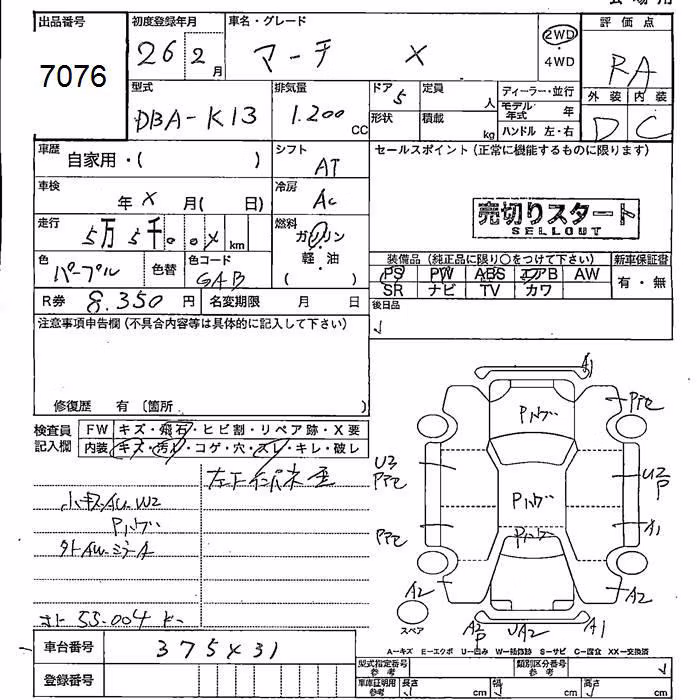 出品番号 初度登録年月 車名・グレード 評価点
7076 26 2月 マーチ X 2WD・4WD RA
外装 内装
D C
型式 DBA-K13 排気量 1.200 CC ドア 5 定員 人 ディーラー・並行
形状 積載 kg モデル年式 年
ハンドル 左・右
車歴 自家用・( ) シフト AT セールスポイント(正常に機能するものに限ります)
車検 年 X 月( 日) 冷房 AC
売切りスタート
SELLOUT
走行 5万5千 km 燃料 ガソリン
軽・油
( )
色 パープル 色替 色コード GAB
装備品(純正品に限り○をつけて下さい) 新車保証書
PS PW ABS エアB AW 有・無
SR ナビ TV カワ
R券 8.350 円 名変期限 月 日 後日品
注意事項申告欄(不具合内容等は具体的に記入して下さい)
修復歴 有 〔箇所 〕
検査員記入欄 FW キズ・飛石・ヒビ割・リペア跡・X要
内装 キズ・汚れ・コゲ・穴・スレ・キレ・破レ
A1
Pハゲ
U3
U2
P
Pハゲ
A1
Pハゲ
A2
A2
スペア
A2
P
UA2
A1
W2
Pハゲ
55.004
A−キズ E−エクボ U−凹み W−補修跡 S−サビ C−腐食 XX−交換済
車台番号 375431
登録番号
型式指定番号 参考 類別区分番号 参考
車庫証明用 参考 長さ cm 幅 cm 高さ cm